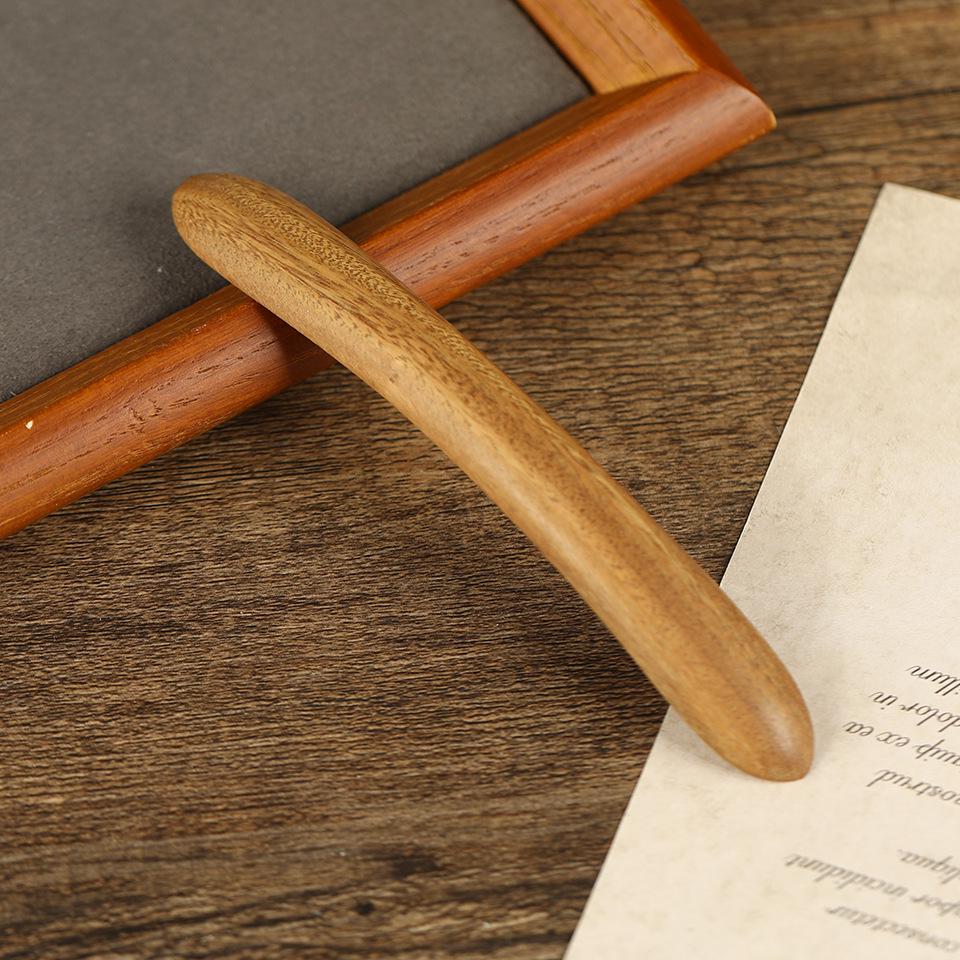 consectetur
por incididunt
liqua.
nostrud
uip ex ea
dolor in
illum